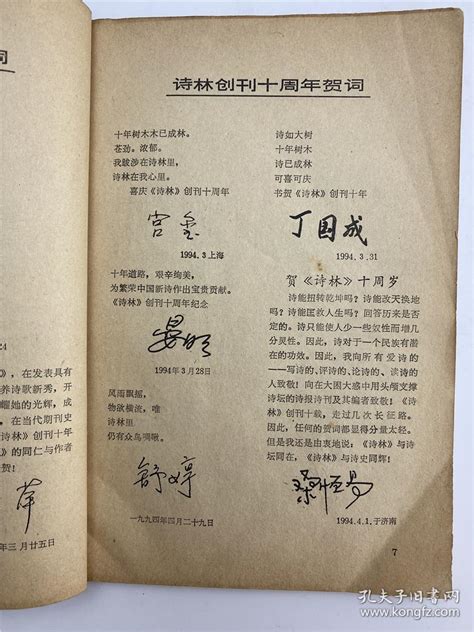 词
24
》,在发表具有
养诗歌新秀,开
耀她的光辉,成
在当代期刊史
《诗林》创刊十年
的同仁与作者
贺!
年三月廿五日
诗林创刊十周年贺词
十年树木木已成林。
苍劲。浓郁。
我跋涉在诗林里,
诗林在我心里。
喜庆《诗林》创刊十周年
宫玺
1994.3上海
十年道路,艰辛绚美,
为繁荣中国新诗作出宝贵贡献。
《诗林》创刊十周年纪念
晏明
1994年3月28日
风雨飘摇,
物欲横流,唯
诗林里
仍有众鸟啁啾。
舒婷
一九九四年四月二十九日
诗如大树
十年树木
诗已成林
可喜可庆
书贺《诗林》创刊十年
丁国成
1994.3.31
贺《诗林》十周岁
诗能扭转乾坤吗?诗能改天换地
吗?诗能匡救人生吗?回答历来是否
定的。诗只能使人少一些奴性而增几
分灵性。因此,诗对于一个民族有潜
在的功效。因此,我向所有爱诗的
——写诗的、评诗的、论诗的、读诗的
人致敬!向在大困大惑中用头颅支撑
诗坛的诗报诗刊及其编者致敬!《诗
林》创刊十载,走过几次长征路。
因此,任何的贺词都显得分量太轻。
但是我还是由衷地说:《诗林》与诗
坛同在,《诗林》与诗史同辉!
桑恒昌
1994.4.1.于济南
7
孔夫子旧书网
kongfz.com